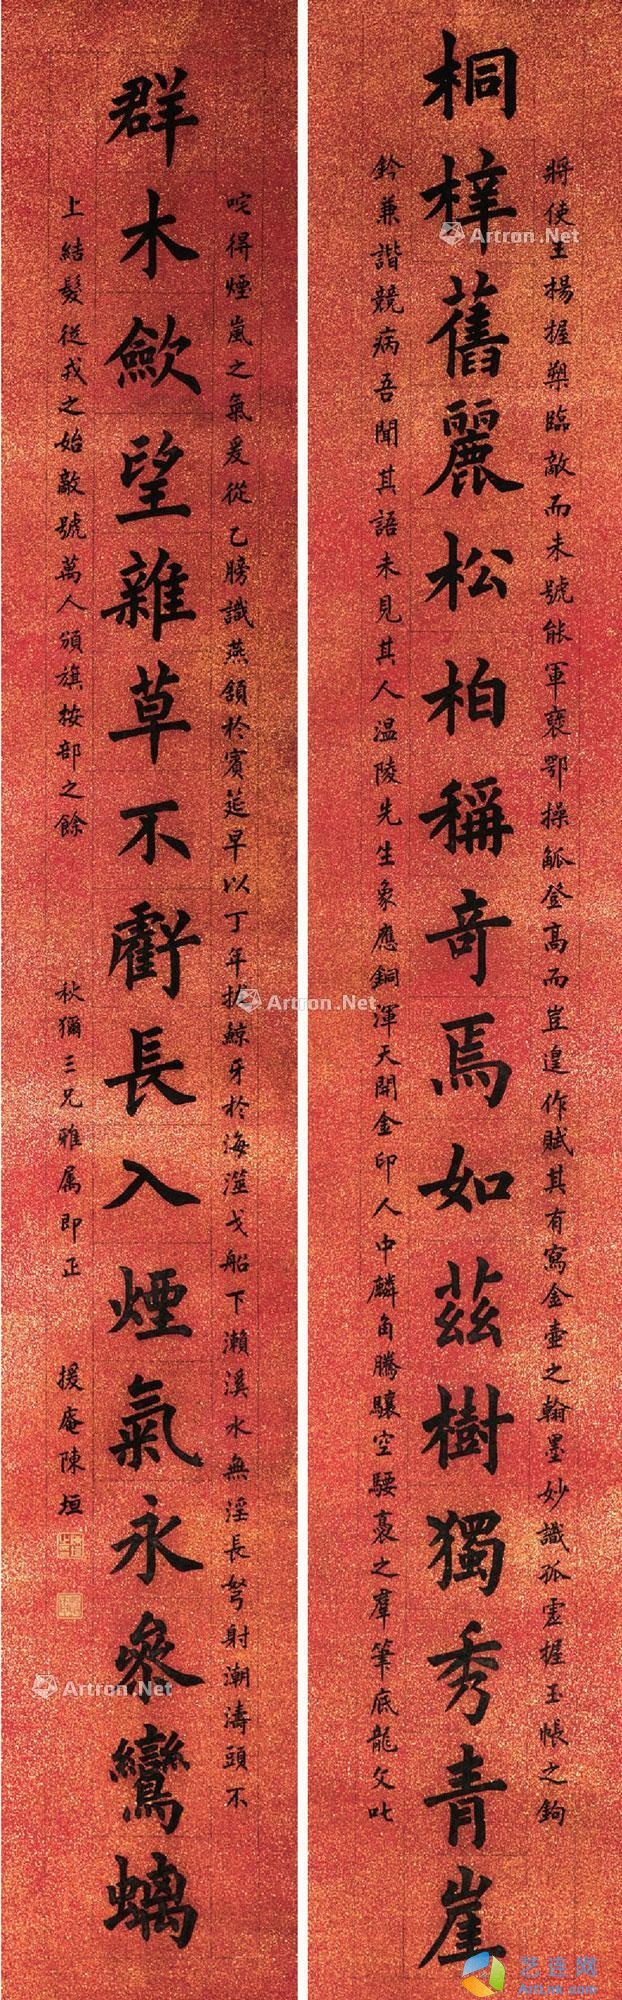 將使王楊握槊臨敵而未號能軍褒鄂操觚登高而豈遑作賦其有寫金壺之翰墨妙識孤虛握玉帳之鉤
桐梓舊麗松柏稱奇焉如茲樹獨秀青崖
鈐兼諧競病吾聞其語未見其人溫陵先生象應銅渾天開金印人中麟角騰驤空騕褭之羣筆底龍文叱
咤得煙嵐之氣爰從乙牓識燕頷於賓筵早以丁年拔鯨牙於海澨戈船下瀨溪水無淫長弩射潮濤頭不
群木歛望雜草不虧長入煙氣永參鸞螭
上結髮從戎之始敵號萬人頒旗按部之餘
秋獮三兄雅属即正
援庵陳垣
Artron.Net
Artron.Net
Artron.Net
Artron.Net
Artron.Net
艺连网
ArtLink.com